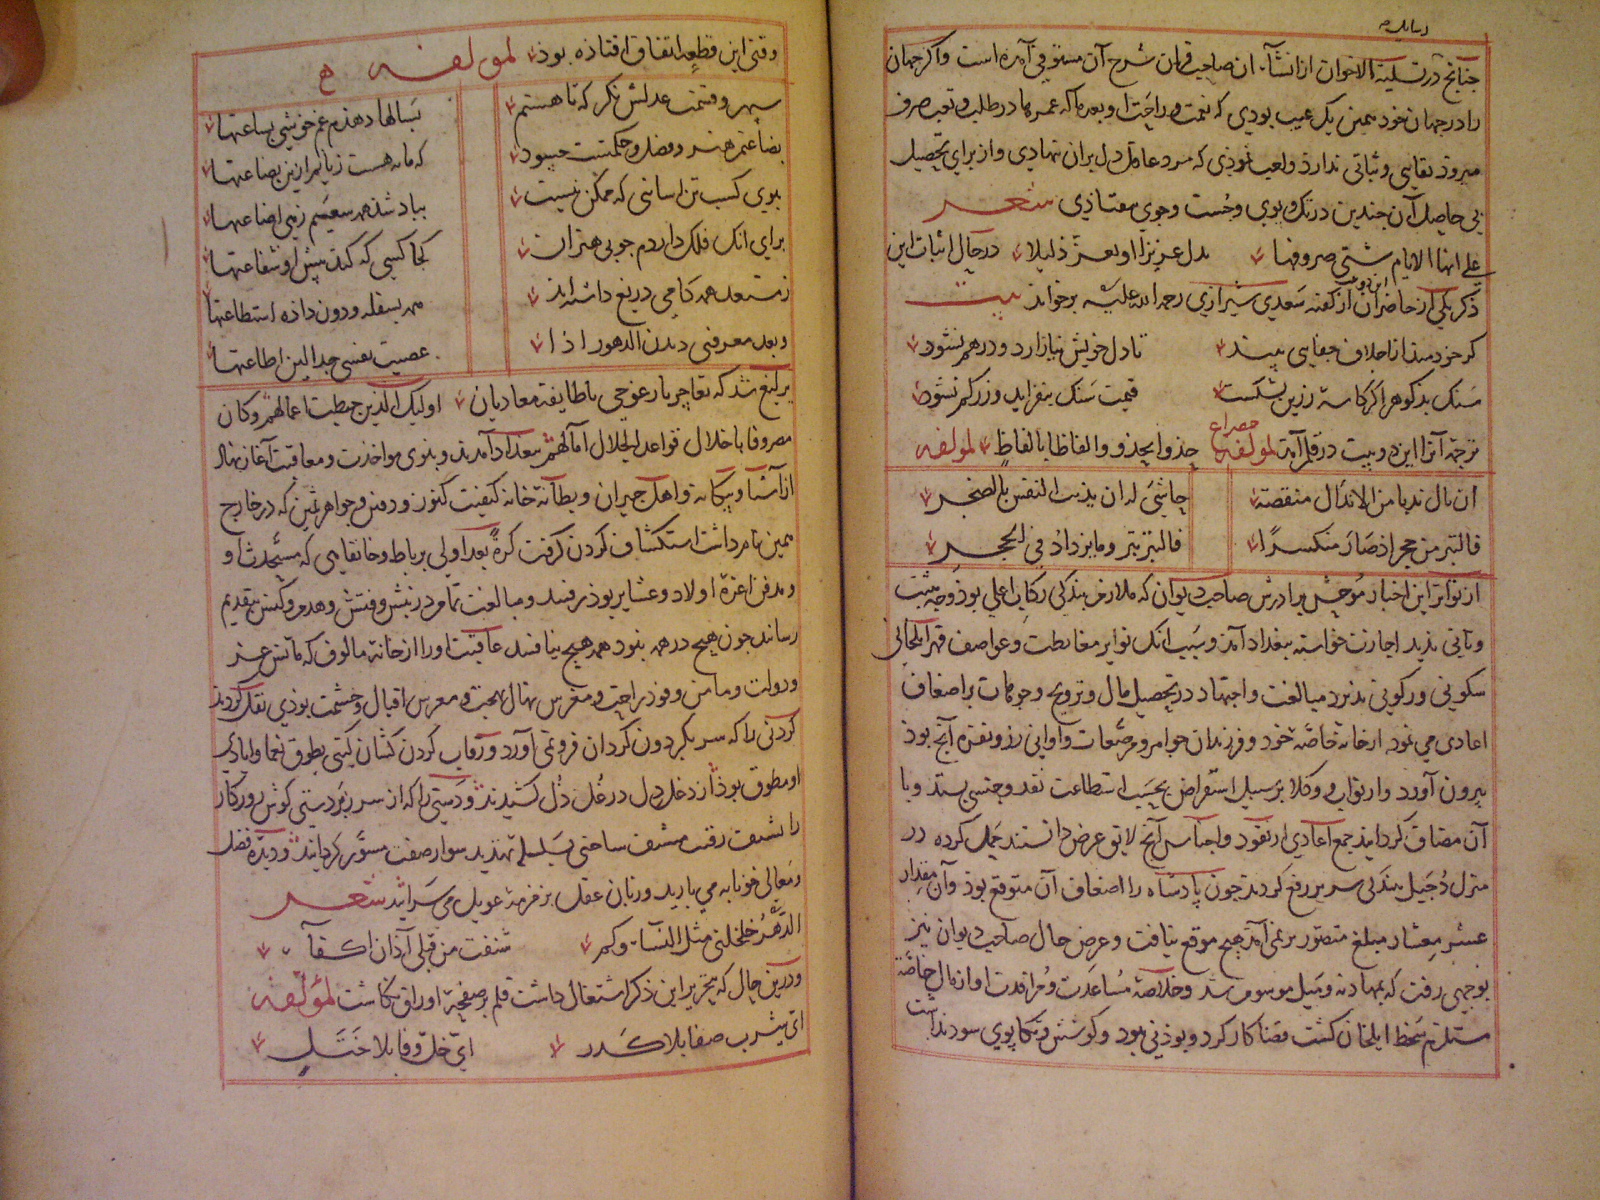 رساینده
چنانچ در تسلیة الاخوان از انشآء ان صاحب قران شرح آن مستوفی آمده است واکر جهان
را در جهان خود همین یک عیب بودی که نعمت و راحت او بعد ما که عمرها در طلب و تعب صرف
میرود بقایی و ثباتی ندارد و لعب نمودی که مرد عاقل دل بران نهادی و از برای تحصیل
بی حاصل آن چندین در تک و پوی و جست و جوی افتادی شعر
علی انها الایام شتی صروفها بدل عزیزا او یعز ذلیلا در حال اثبات این
ذکر یکی از حاضران این دو بیت از کفته سعدی شیرازی رحمة الله علیه برخواند بیت
کر خردمند از اجلاف جفایی بیند تا دل خویش نیازارد و درهم نشود
سنک بد کوهر اکر کاسه زرین بشکست قیمت سنک نیفزاید و زر کم نشود
ترجمه آنرا این دو بیت در قلم آمد لمولفه مصراع حذو ا یحذو و الفاظا بالفاظ لمولفه
ان نال ندبا من الانذال منقصة حاشی له ان یذیب النفس بالضجر
فالتبر من حجر اذ صار منکسرا فالتبر تبر وما یزداد فی الحجر
از تواتر این اخبار موحش برادرش صاحب دیوان که ملازم بندکی رکاب اعلی بود وجه مثبت
و باقی بدید اجازت خواسته ببغداد آمد و سبب انک نوایر مغایظت و عواصف قهر ایلخانی
سکونی و رکونی پذیرد مبالغت و اجتهاد در تحصیل مال و ترویج وجوهات بر اضعاف
اعادی می نمود از خانه خاصه خود و فرزندان جواهر و مرصعات و اوانی زر و نقره آنچ بود
بیرون آورد و از نواب و وکلا بر سبیل استقراض بحسب استطاعت نقد و جنسی بستد و با
آن مضاف کردانید جمع اعادی از نقود و اجناس آنچ لایق عرض دانستند حمل کرده در
منزل دجیل ببندکی سریر رفع کردند چون پادشاه را اضعاف آن متوقع بود و آن مقدار
عشر معشار مبلغ متصور بر نمی آمد هیچ موقع نیافت و عرض حال صاحب دیوان نیز
بوجهی رفت که بمهادنه و میل موسوم شد و خلاصه مساعدت و مرافدت او از مال خاصه
مستلزم سخط ایلخان کشت قضا کار کرد و بودنی ببود و کوشش و تکاپوی سود نداشت
وقتی این قطعه اتفاق افتاده بود لمولفه
سپهر و قیمت عدلش نکر که تا هستم بسالها دهدم غم خوشی بساعتها
بضاعتم هنر و فضل و حکمتست چسود که مایه هست زیانم ازین بضاعتها
ببوی کسب تن اسانی که ممکن نیست بباد شد همه سعیم زهی اضاعتها
برای انک فلک داردم چو بی هنران کجا کسی که کند پیش او شفاعتها
ز مستعد همه کامی دریغ داشته اند همه بسفله و دون داده استطاعتها
و بعد معرفتی دیدن الدهور اذا عصیت نفسی جد الین اطاعتها
یرلیغ شد که تغاچار یارغوجی با طایفه معادیان اولیک الذین حبطت اعمالهم وکان
مصروفا باخلال قواعد الجلال آمالهم ببغداد آمدند و بنوی مواخذت و معاقبت آغاز نهاد
از آشنا و بیکانه و اهل جیران و بطانة خانه کیفیت کنوز و دفین و جواهر ثمین که در خارج
همین نام داشت استکشاف کردن کرفت کرة بعد اولی بر باط و خانقاهی که مستحدث او
و مدفن اعزه اولاد و عشایر بود رفتند و مبالغت تمام در نبش و فتش و هدم و کنس بتقدیم
رساند چون هیچ درهم نبود همه هیچ نیافتند عاقبت او را از خانه مالوف که مانس عز
و دولت و مامن وفود راحت و مغرس نهال بهجت و معرس اقبال و حشمت بودی نقل کردند
کردنی را که سر بکردون کردان فرو نمی آورد و رقاب کردن کشان کیتی بطوق نعما و ایادی
او مطوق بود از دغل دل در غل ذل کشیدند و دستی را که از سر زبردستی کوش روزکار
را بشنف رفت مشنف ساختی بسلسله تهدید سوار صفت مسور کردانیدند و دیده فضل
و معالی خونابه می بارید و زبان عقل بر زفرت عویل می سرائید شعر
الدهر خلخلنی مثل النساء وکم شنفت من قبلی آذان اکفاء
و درین حال که بتحریر این ذکر اشتغال داشت قلم بر صفحه اوراق نکاشت لمولفه
ای یشرب صفا بلا کدر ای خل وفا بلا ختل